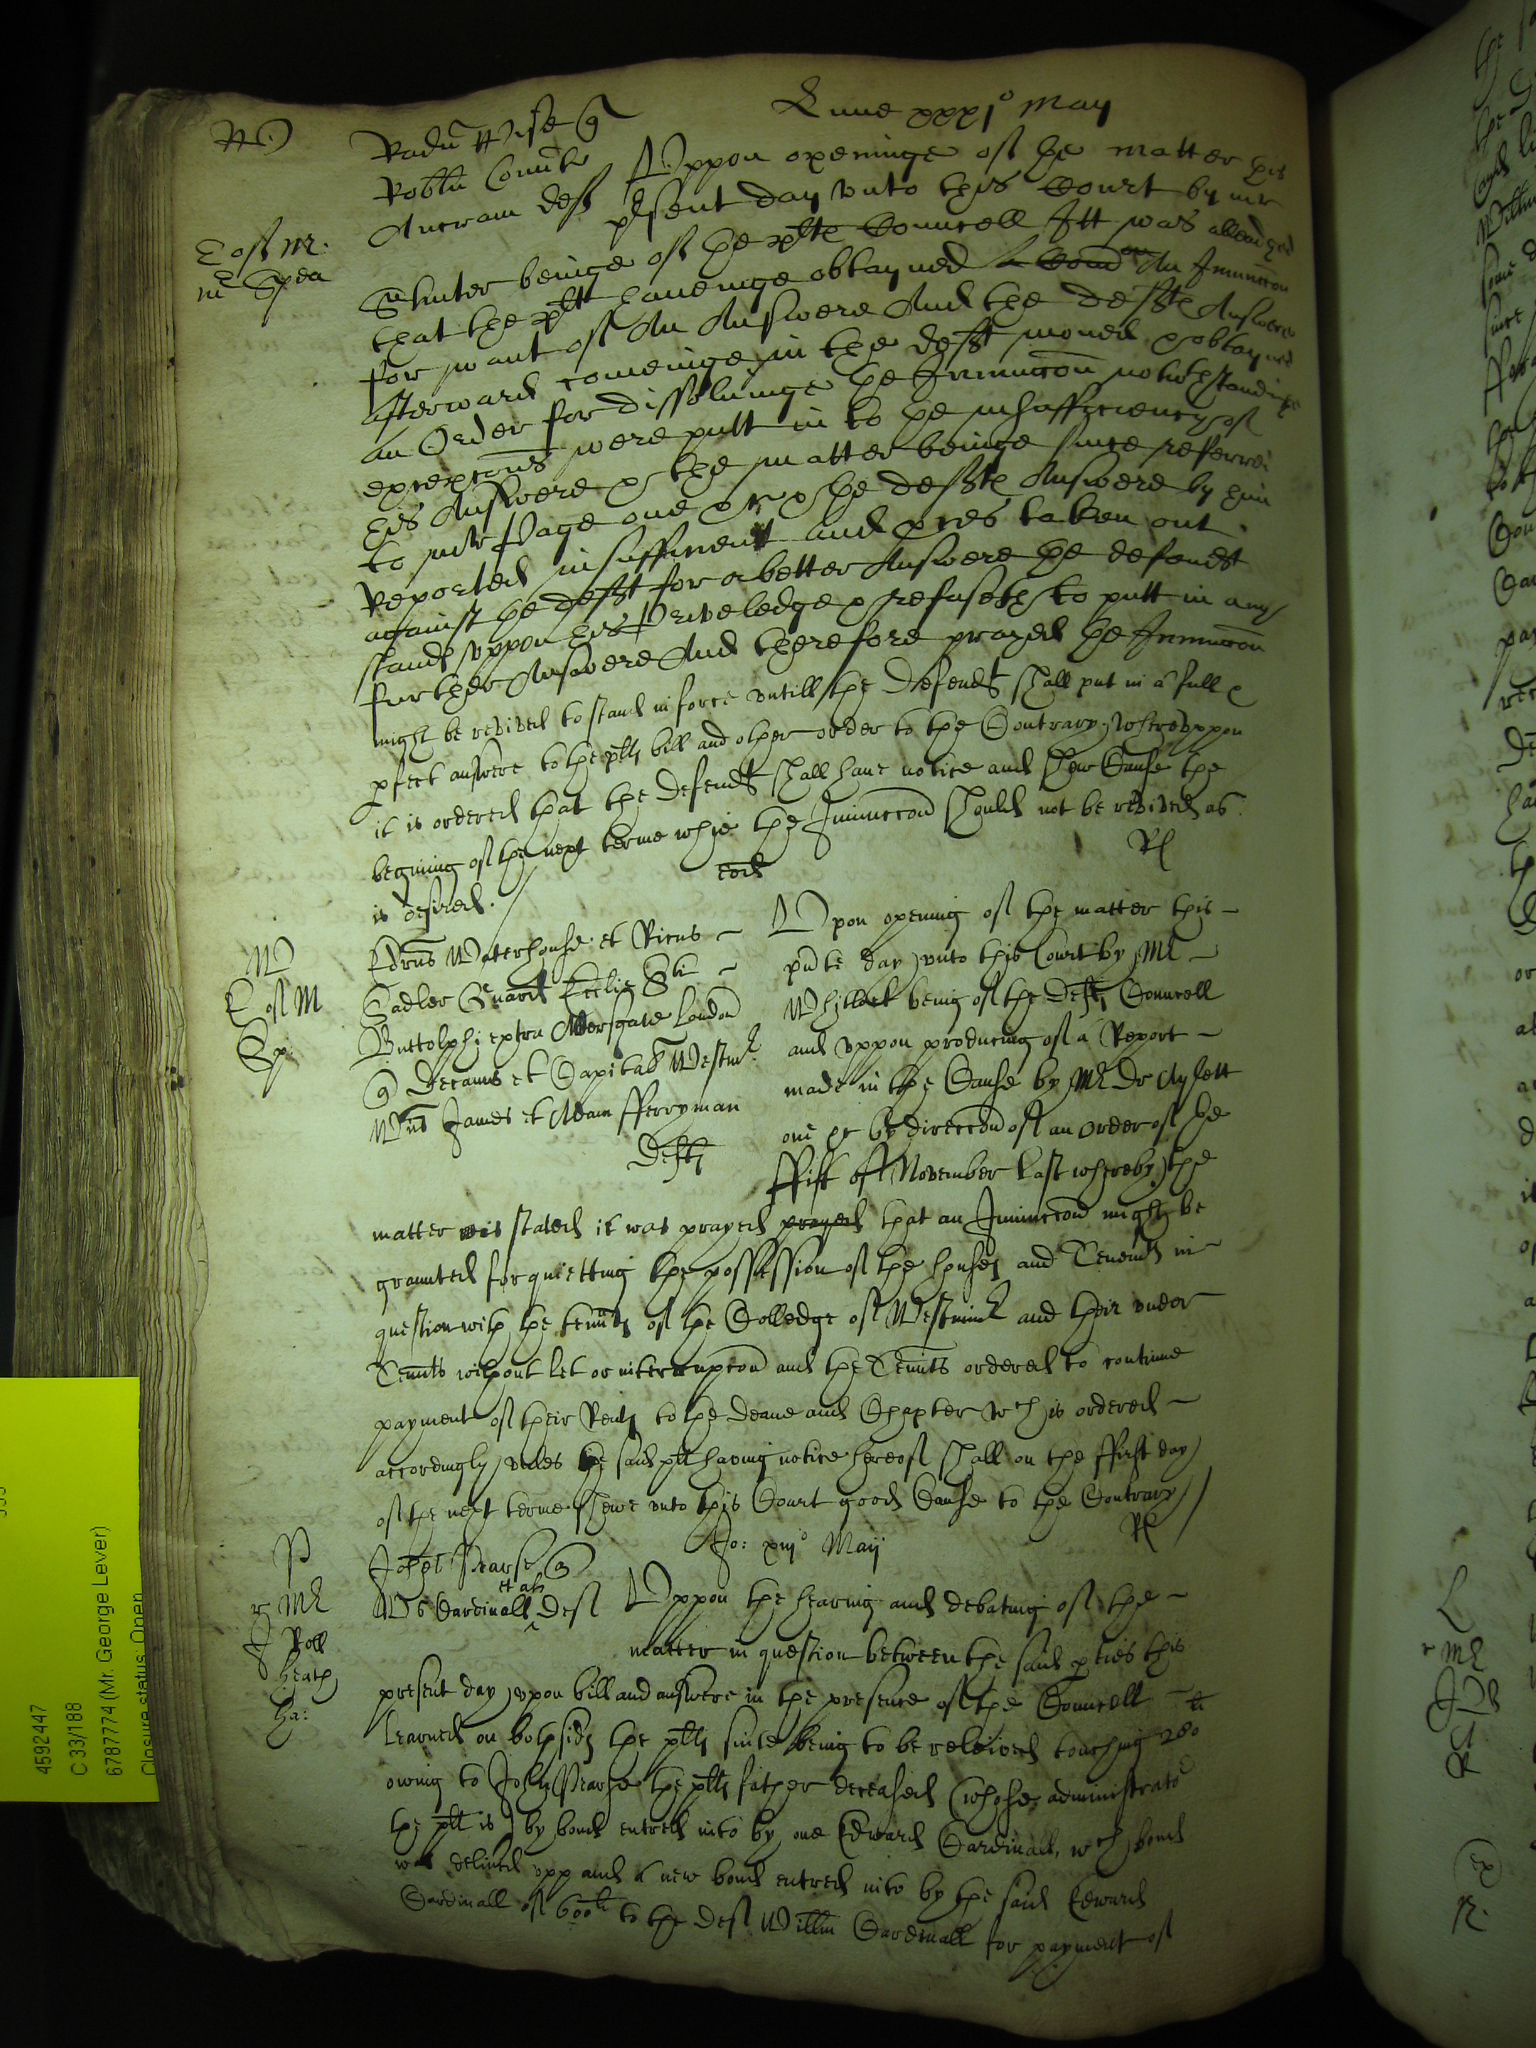 Lune xxxjº May
Radus Wise q
Robtus Comes de
Ancram deft
Uppon openinge of the matter this
present day unto this Court by mr
E of M.
Mr Spea
Shuter beinge of the plts Councell Itt was alleadged
that the plt haueinge obtayned a Com an Iniunccon
for want of An Answere And the defts Answere
Afterward comeinge in the deft moued & obtayned
an Order for dissoluinge the Iniunccon notwthstandinge
excepcons were putt in to the insufficiency of
his Answere & the matter beinge since referred
to mr Page one &c & the defts Answere by him
Reported insufficient and proces taken out
against the deft for a better Answere the defendt
stands uppon his Priveledge & refuseth to putt in any
further Answere And therefore prayed the Iniunccon
might be revived to stand in force untill the Defendt shall put in a full &
pfect answere to the plts bill and other order to the Contrary, Whereuppon
it is ordered that the Defendt shall have notice and shew Cause the
begining of the next terme whie the Iniunccon should not be revived as
is desired.
eod
Rl
W
E of M
Sp
Edrus Waterhouse et Ricus
Sadler Guard Ecclie Sti
Buttolphi extra Aldersgate London
q Decanus et Capitalr Westmr
Wms James et Adam fferryman
Defts
Upon opening of the matter this
pnte day unto this Court by Mr
Whitlock being of the Defts Councell
and uppon producing of a Report
made in the Cause by Mr Dr Aylett
one &c by direccon of an order of the
ffift of November last whereby the
matter is stated it was prayed prayed that an Iniunccon might be
graunted for quietting the possession of the houses and Tenemts in
question with the tennts of the Colledge of Westminr and their under
Tennts without let or interrupcon and the Tennts ordered to continue
payment of their Rents to the Deane and Chapter wch is ordered
accordingly unles the said plt having notice hereof shall on the ffirst day
of the next terme shewe unto this Court good Cause to the Contrary
Jo: xiijº Maij
Rl
P
Mr
Roll
heath
ha:
Johes Pearse q
Ws Cardinall et al Deft
Uppon the hearing and debating of the
matter in question between the said pties this
present day upon bill and answere in the presence of the Councell
Learned on both sids the plts suite being to be releived touching 280li
owing to John Pearse the plts father deceased (whose administrator
the plt is) by bond entred into by one Edward Cardinall, wch bond
was delivd upp and a new bond entred into by the said Edward
Cardinall of 600li to the Deft Willm Cardinall for payment of
4592447
C 33/188
6787774 (Mr. George Lever)
Closure status: Open